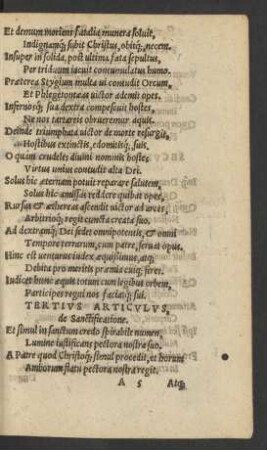 Et demum moriens fatalia munera soluit,
Indignamq́; subit Christus, obitq́; necem.
Insuper in solida, post ultima fata sepultus,
Per triduum iacuit contumulatus humo.
Præterea Stygium multa ui contudit Orcum,
Et Phlegetontæas uictor ademit opes.
Infernosq́; sua dextra compescuit hostes,
Ne nos tartareis obrueremur aquis.
Deinde triumphata uictor de morte resurgit,
Hostibus extinctis, edomitisq́; suis,
O quàm crudeles diuini nominis hostes
Virtus unius contudit alta Dei.
Solus hic æternam potuit reparare salutem,
Solus hic amissas reddere quibat opes,
Rursus & æthereas ascendit uictor ad arces,
Arbitrioq́; regit cuncta creata suo.
Ad dextramq́; Dei sedet omnipotentis, & omni
Tempore terrarum, cum patre, seruat opus.
Hinc est uenturus iudex æquißimus, atq́;
Debita pro meritis præmia cuiq́; feret.
Iudicet hunc æquis totum cum legibus orbem,
Participes regni nos faciatq́; sui.
TERTIVS ARTICVLVS,
de Sanctificatione.
Et simul in sanctum credo spirabile numen,
Lumine iustificans pectora nostra suo.
A Patre quod Christoq́; simul procedit, et horum
Amborum flatu pectora nostra regit.
A 5 Atq́;